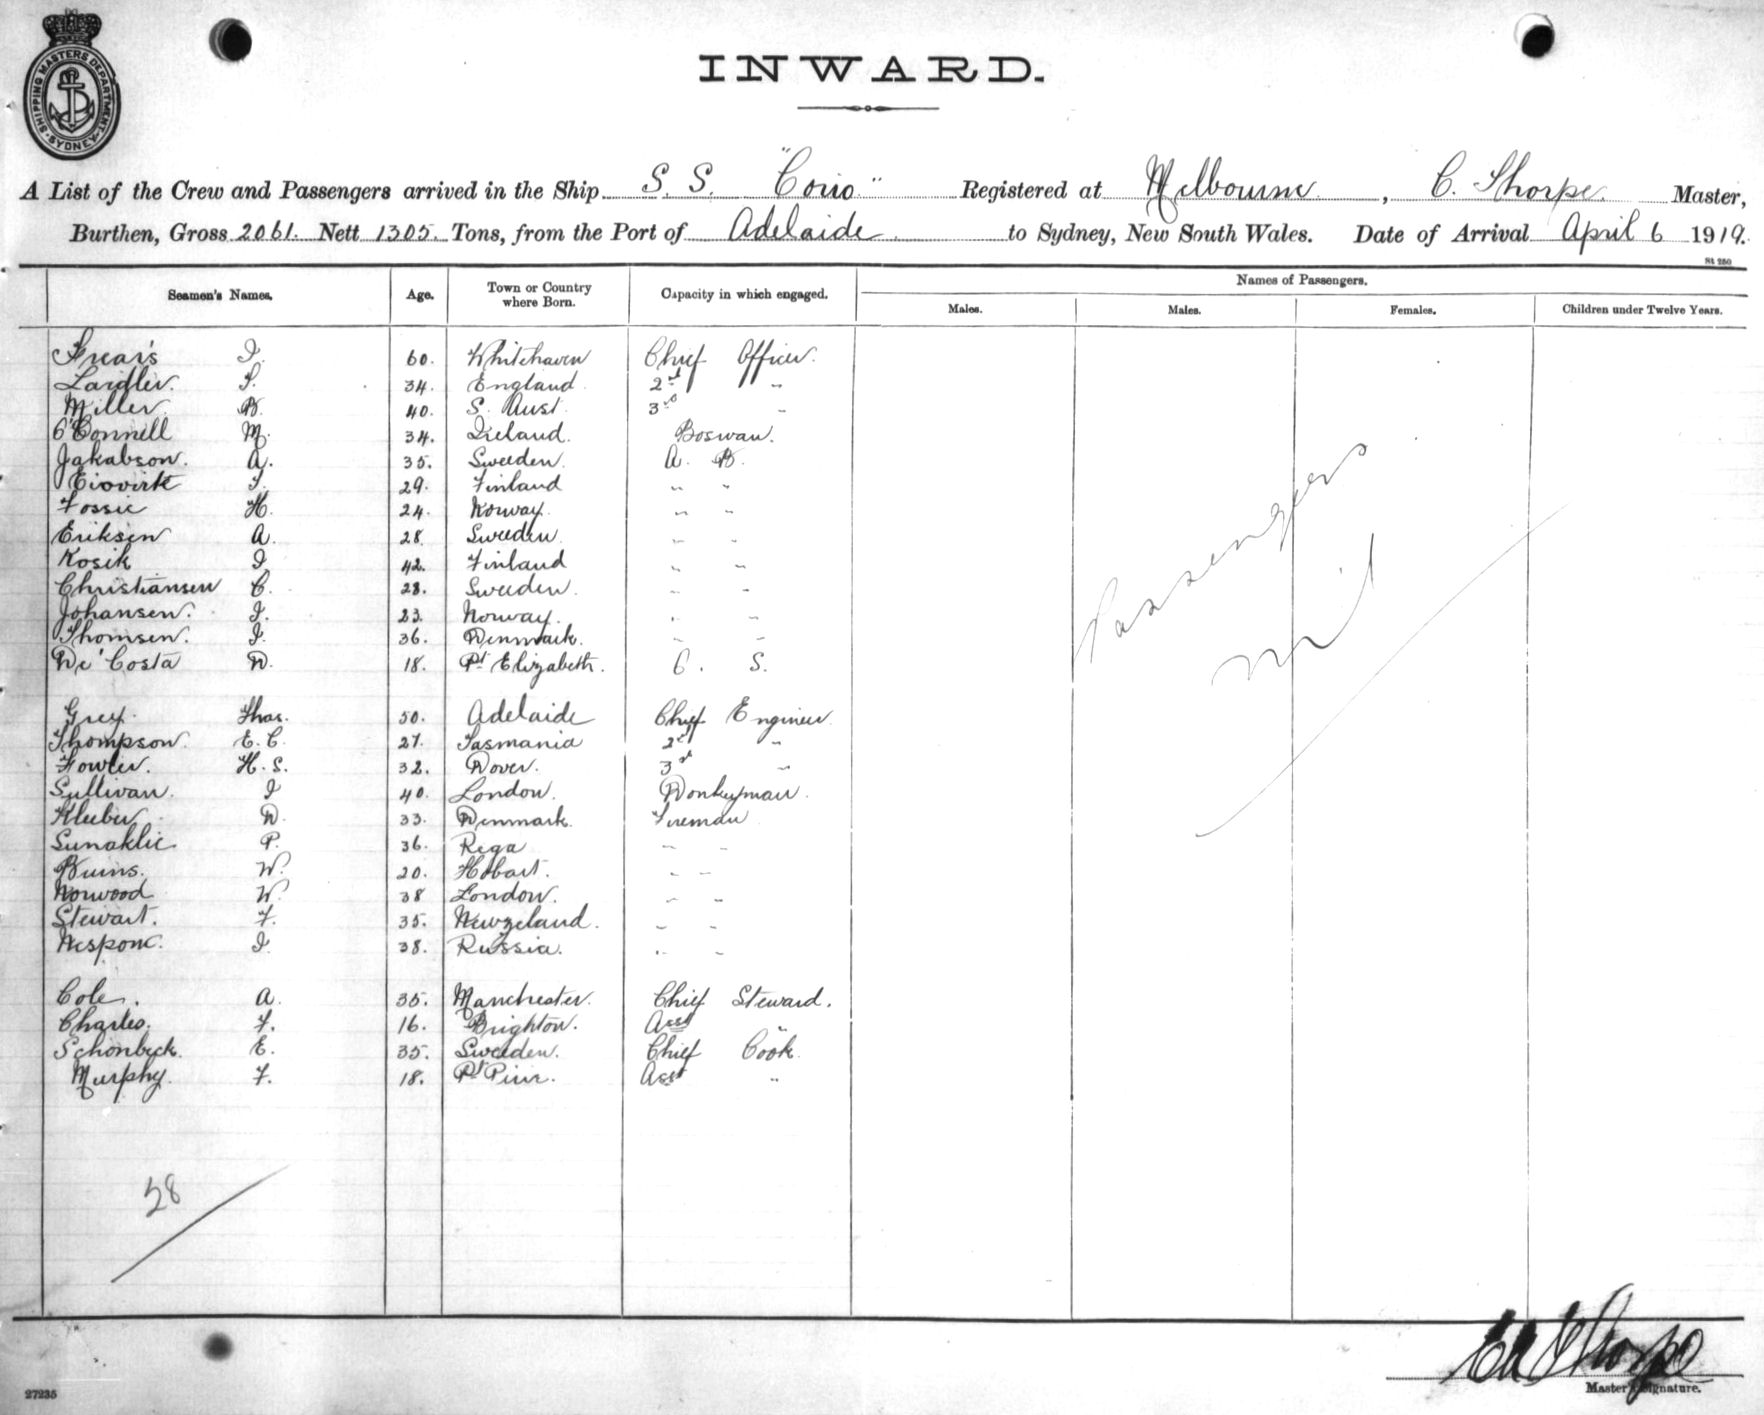 SHIPPING MASTERS DEPARTMENT SYDNEY
INWARD.
A List of the Crew and Passengers arrived in the Ship S. S. "Corio" Registered at Melbourne, C. Thorpe. Master,
Burthen, Gross 2061. Nett 1305. Tons, from the Port of Adelaide to Sydney, New South Wales. Date of Arrival April 6 1919.
Seamen's Names. Age. Town or Country where Born. Capacity in which engaged. Names of Passengers.
Males. Males. Females. Children under Twelve Years.
J. 60. Whitehaven Chief Officer.
Laidler. 34. England 2nd "
Miller B. 40. S. Aust. 3rd "
O'Connell M. 34. Ireland. Boswan.
Jakabson. A. 35. Sweeden. A. B.
29. Finland " "
Fossie H. 24. Norway. " "
Eriksen A. 28. Sweeden. " "
Kosik J. 42. Finland " "
Christiansen C. 28. Sweeden. " "
Johansen. J. 23. Norway. " "
Thomsen. J. 36. Denmark. " "
De'Costa D. 18. Pt Elizabeth. O. S.
Grey. Thos. 50. Adelaide Chief Engineer
Thompson. E. C. 27. Tasmania 2nd "
Fowler. H. S. 32. Dover. 3rd "
Sullivan. J 40. London. Donkeyman.
Kluber D. 33. Denmark. Fireman
Sunaklie P. 36. Rega " "
W. 20. Hobart. " "
Norwood W. 38 London. " "
Stewart. F. 35. Newzeland. " "
J. 38. Russia. " "
Cole. A. 35. Manchester. Chief Steward.
Charles. F. 16. Brighton. Asst "
Schonbeck. E. 35. Sweeden. Chief Cook.
Murphy. F. 18. Pt Pirie. Asst "
Passengers
nil
28
Thorpe
Master's Signature.
27235